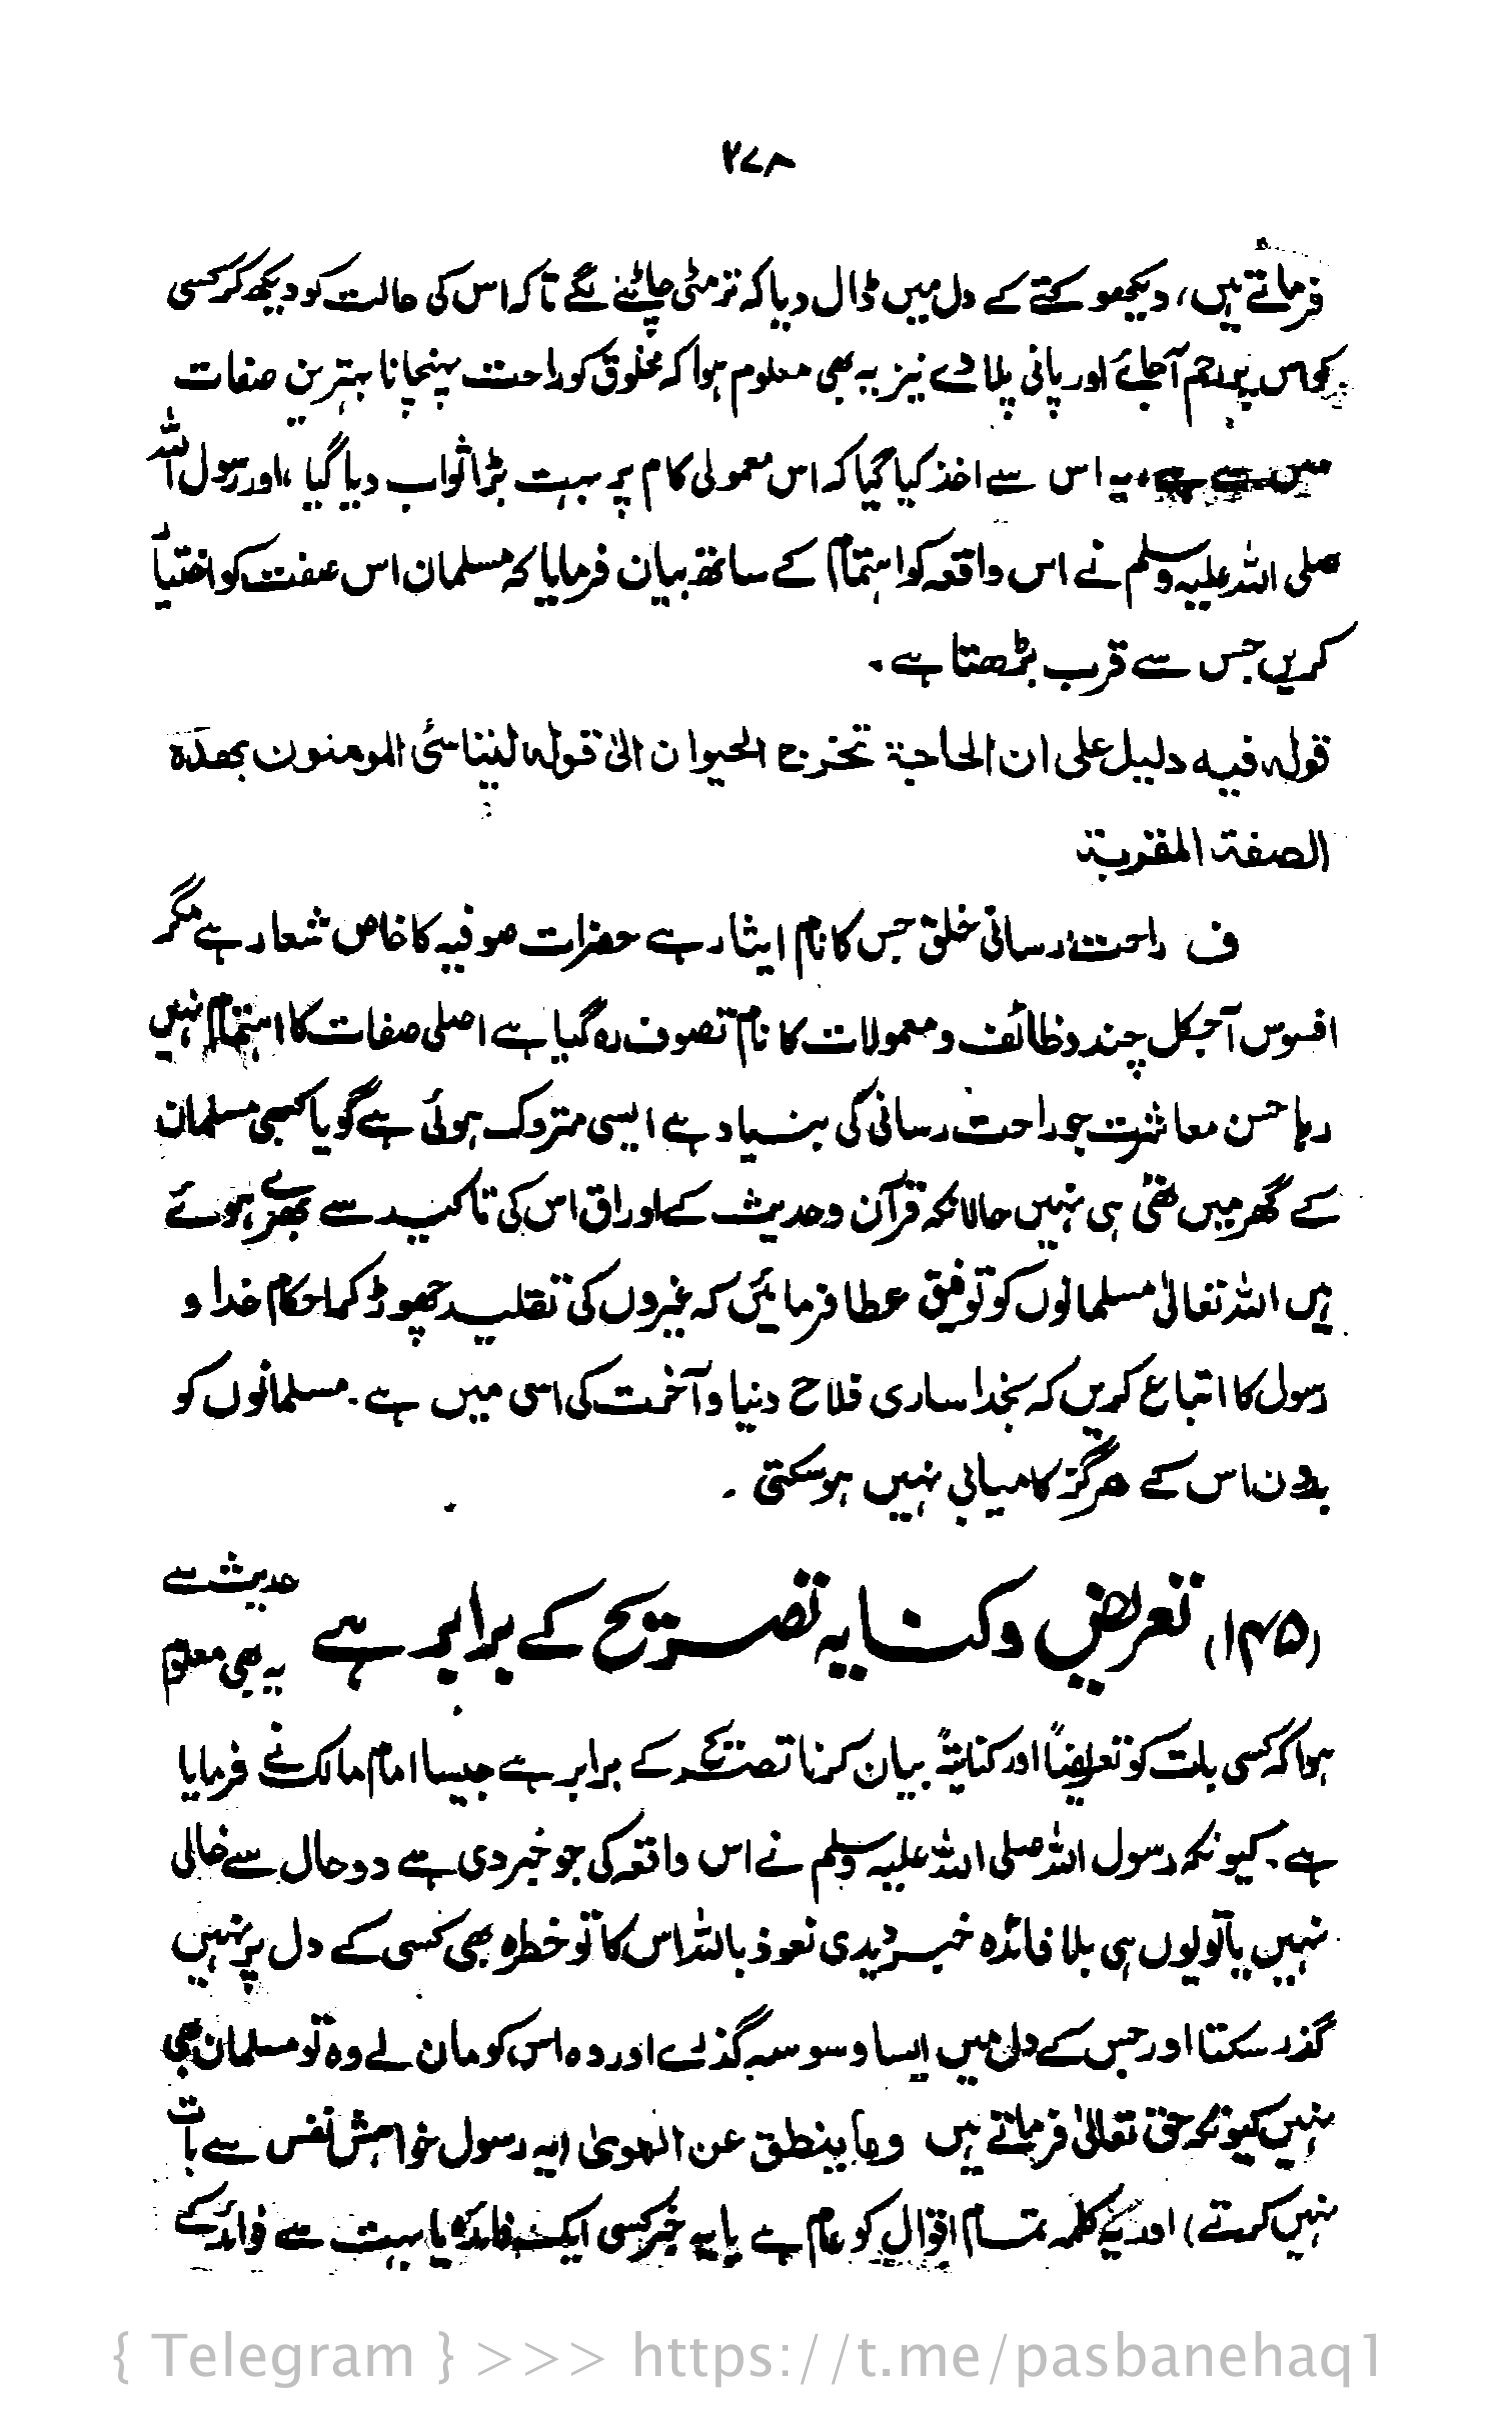 ۲۷۸
فرماتے ہیں، دیکھو کتے کے دل میں ڈال دیا کہ تر مٹی چاٹنے لگے تاکہ اس کی حالت کو دیکھ کر کسی
کو اس پر رحم آجائے اور پانی پلا دے نیز یہ بھی معلوم ہوا کہ مخلوق کو راحت پہنچانا بہترین صفات
میں سے ہے، یہ اس سے اخذ کیا گیا کہ اس معمولی کام پر بہت بڑا ثواب دیا گیا، اور رسول اللہ
صلی اللہ علیہ وسلم نے اس واقعہ کو اہتمام کے ساتھ بیان فرمایا کہ مسلمان اس صفت کو اختیار
کریں جس سے قرب بڑھتا ہے۔
قولہ فیہ دلیل علی ان الحاجۃ تخرج الحیوان الیٰ قولہ لیتاسی المومنون بھذہ
الصفۃ المقربۃ
ف راحت رسانی خلق جس کا نام ایثار ہے حضرات صوفیہ کا خاص شعار ہے مگر
افسوس آجکل چند وظائف و معمولات کا نام تصوف رہ گیا ہے اصلی صفات کا اہتمام نہیں
رہا حسن معاشرت جو راحت رسانی کی بنیاد ہے ایسی متروک ہوئی ہے گویا کبھی مسلمان
کے گھر میں تھی ہی نہیں حالانکہ قرآن و حدیث کے اوراق اس کی تاکید سے بھرے ہوئے
ہیں اللہ تعالیٰ مسلمانوں کو توفیق عطا فرمائیں کہ غیروں کی تقلید چھوڑ کر احکام خدا و
رسول کا اتباع کریں کہ بخدا ساری فلاح دنیا و آخرت کی اسی میں ہے۔ مسلمانوں کو
بدون اس کے ہرگز کامیابی نہیں ہوسکتی۔
(۱۴۵) تعریض و کنایہ تصریح کے برابر ہے حدیث سے
یہ بھی معلوم
ہوا کہ کسی بات کو تعریضاً اور کنایۃً بیان کرنا تصریح کے برابر ہے جیسا امام مالک نے فرمایا
ہے۔ کیونکہ رسول اللہ صلی اللہ علیہ وسلم نے اس واقعہ کی جو خبر دی ہے دو حال سے خالی
نہیں یا تو یوں ہی بلا فائدہ خبر دیدی نعوذ باللہ اس کا تو خطرہ بھی کسی کے دل پر نہیں
گذر سکتا اور جس کے دل میں ایسا وسوسہ گذرے اور وہ اس کو مان لے وہ تو مسلمان ہی
نہیں کیونکہ حق تعالیٰ فرماتے ہیں وما ینطق عن الھویٰ (یہ رسول خواہش نفس سے بات
نہیں کرتے) اور یہ کلمہ تمام اقوال کو عام ہے یا یہ خبر کسی ایک فائدہ یا بہت سے فوائد کے
{ Telegram } >>> https://t.me/pasbanehaq1